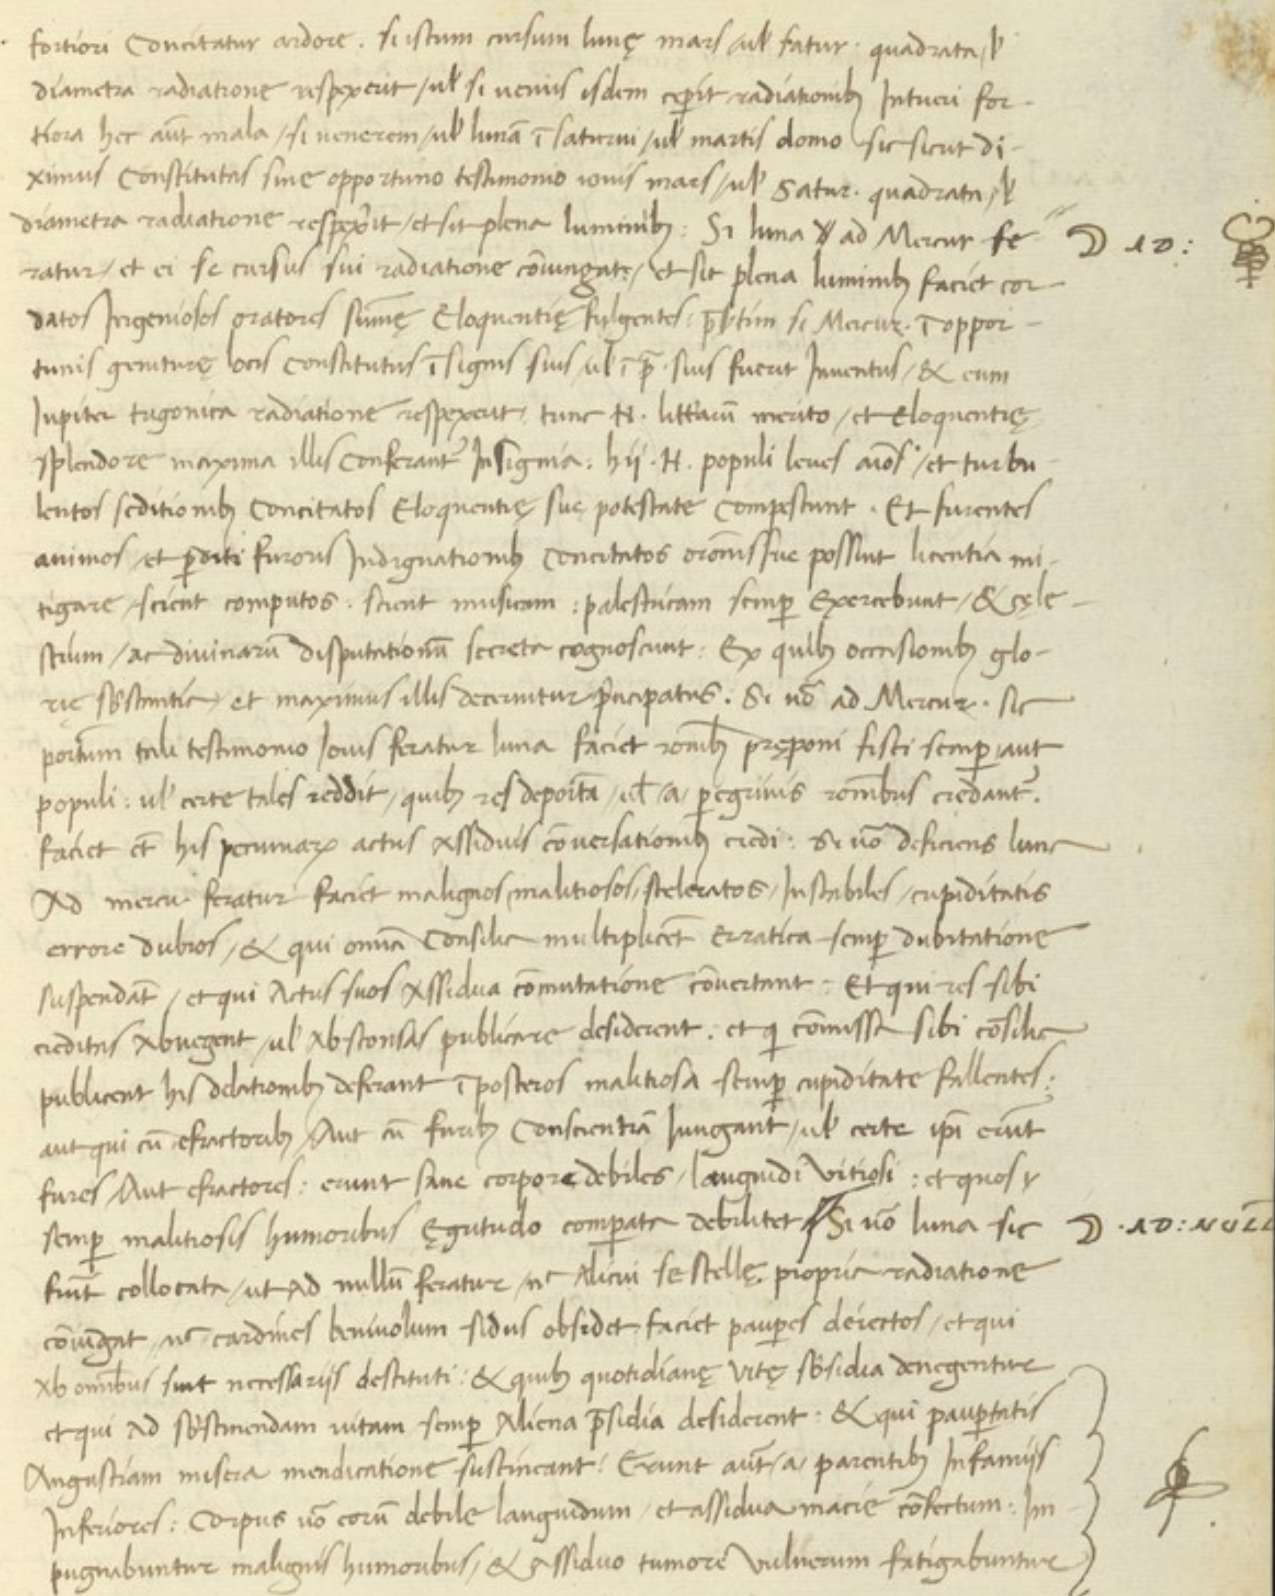 fortiori Concitatur ardore . si istum cursum lunę mars / ul fatur . quadrata / l
diametra radiatione respexerit / ul si venus isdem ceꝑit radiationibꝫ Intueri for-
tiora hec aūt mala / si venerem / ul lunā ī saturni / ul martis domo sic sicut di-
ximus Constitutas sine opportuno testimonio iovis mars / ul Satur . quadrata / l
diametra radiatione respexit / et sit plena luminibꝫ : Si luna ad Mercur fe-
ratur / et ei se cursus sui radiatione cōiungat : / et sit plena luminibꝫ faciet cor-
datos Ingeniosos oratores sūmę Eloquentię fulgentes : p̄sertim si Mercur . ī oppor-
tunis geniturę locis Constitutus ī signis suis / ul ī p̄ . suis fuerit Inventus / & eum
Jupiter trigonica radiatione respexerit tunc N . litterarū merito / et Eloquentię
splendore maxima illis Conferantᷣ Insignia : hij . N . populi leves aīos / et turbu-
lentos seditionibꝫ Concitatos Eloquentię suę potestate Compescunt . Et furentes
animos / et ꝑditi furoris Indignationibꝫ Concitatos orōnis sue possint licentia mi-
tigare / scient computos . scient musicam : palestricam semꝑ Exercebunt / & cęle-
stium / ac divinarū disputationū secreta cognoscunt : Ex quibꝫ occasionibꝫ glo-
rię sb̄stantia / et maximus illis decernitur p̄ncipatus . Si uō ad Mercur . sic
portūm tali testimonio Iovis feratur luna faciet rōnibꝫ pręponi fisci semꝑ aut
populi : ul certe tales reddit / quibꝫ res deposita / ul / a / ꝑegrinis rōnibus credantᷣ .
faciet et̄ his pecuniarꝝ actus Assiduis cōversationibꝫ credi : Si uō deficiens luna
Ad mercu feratur faciet malignos malitiosos / sceleratos / Instabiles / cupiditatis
errore dubios / & qui omīa Consilia multiplicēt Erratica semꝑ dubitatione
suspendāt / et qui Actus suos Assidua cōmutatione cōvertant : Et qui res sibi
creditas Abnegent / ul Absconsas publicare desiderent . et q̇ cōmissa sibi cōsilia
publicent his delationibꝫ deferant ī posteros malitiosa semꝑ cupiditate fallentes :
aut qui cū efractoribꝫ / Aut cū furibꝫ Conscientiā Iungant / ul certe ipī erūt
fures / Aut efractores : erunt sane corpore debiles / languidi Vitiosi : et quos
semꝑ malitiosis humoribus Ęgritudo comparata debilitet // Si uō luna sic
fuīt collocata / ut Ad nullū feratur / nc̄ Alicui se stellę . propria radiatione
cōiūgat / nc̄ cardines benivolum sidus obsidet faciet pauꝑes deiectos / et qui
Ab omībus sint necessarijs destituti : & quibꝫ quotidianę vitę sb̄sidia denegentur
et qui Ad sb̄stinendam vitam semꝑ Aliena p̄sidia desiderent . & qui pauꝑtatis
Angustiam misera mendicatione sustineant : Erunt aūt / a / parentibꝫ Infamijs
Inferiores : Corpus uō eorū debile languidum / et assidua macie cōfectum : Im-
pugnabuntur malignis humoribus / & Assiduo tumore Vulnerum fatigabuntur
☽ AD :
☽ . AD : NULL